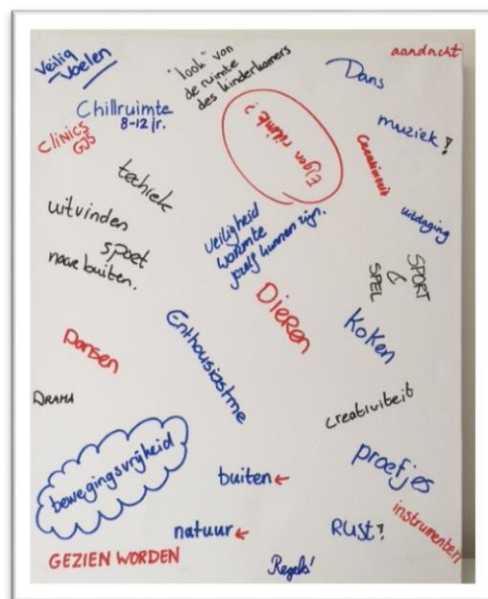 Veilig
voelen
"look" van
de ruimte
des kinderkamers
Dans
aandacht
Chillruimte
8-12 jr.
Eigen ruimte?
muziek!
Clinics
GJS
Creativiteit
techiek
uitdaging
uitvinden
veiligheid
warmte
jezelf kunnen zijn.
spoet
naar buiten.
SPORT
&
SPEL
Dieren
Koken
Enthousiastme
Dansen
DRAMA
creativiteit
bewegingsvrijheid
proefjes
buiten
instrumenten
natuur
RUST!
GEZIEN WORDEN
Regels!